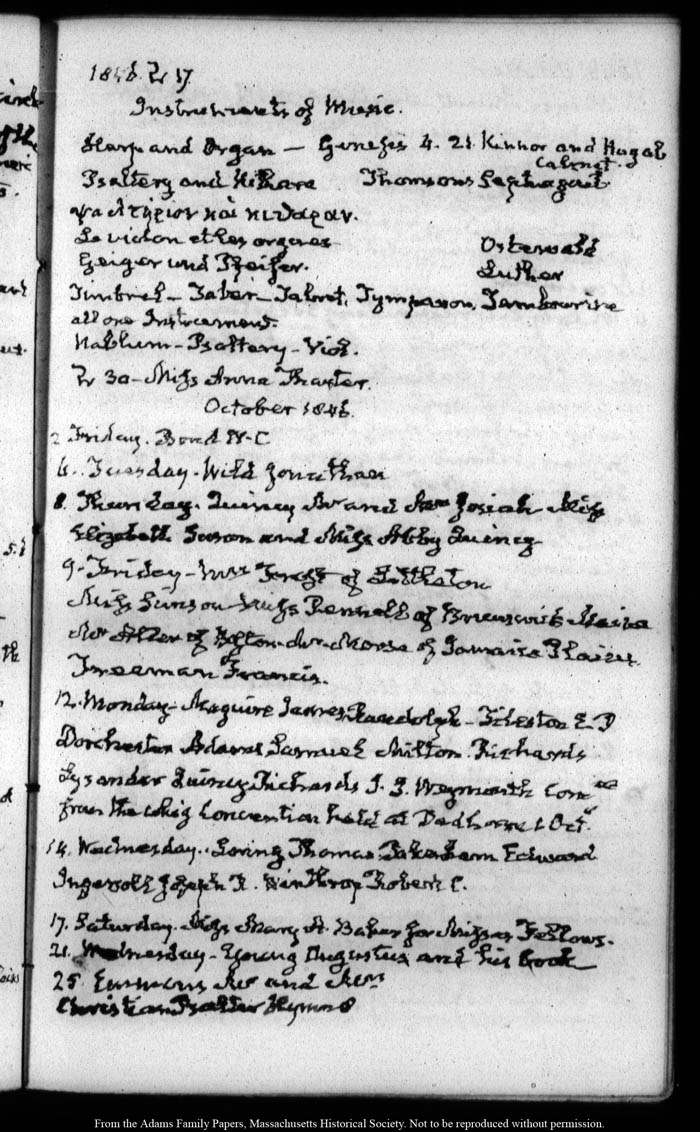 1846. 17.
Instruments of Music.
Harp and Organ — Genesis 4. 21. Kinnor and Hugab
Calmet.
Psaltery and Kithara Thomsons Septuagint
ψαλτήριον καὶ κιθαραν.
Le violon et les orgues Osterwald
Geiger und Pfeifer. Luther
Timbrel — Tabor — Tabret, Tympanon, Tambourine
all one Instrument.
Nablum — Psaltery — Viol.
30 — Miss Anna Thaxter.
October 1846.
2 Friday. Bond W-C
6. Tuesday. Wild Jonathan
8. Thursday. Quincy Mr and Mrs Josiah Miss
Elizabeth Susan and Miss Abby Quincy
9. Friday — Mrs of
Miss Miss of Brunswick Maine
Mr of Boston. Mr Morse of Jamaica Plains
Freeman Francis.
12. Monday — Maguire James Randolph — Tileston E P
Dorchester Adams Samuel Milton. Richards
Lysander Quincy Richards J. J. Weymouth Comee
from the whig Convention held at Dedham 6 Octr
14. Wednesday. Loring Thomas Edward
Ingersoll Joseph R. Winthrop Robert C.
17. Saturday. Miss Mary A. Baker for Misses Fellows.
21. Wednesday — Young Augustus and his book
25. Emmons Mr and Mrs
Christian Psalter Hymns
From the Adams Family Papers, Massachusetts Historical Society. Not to be reproduced without permission.